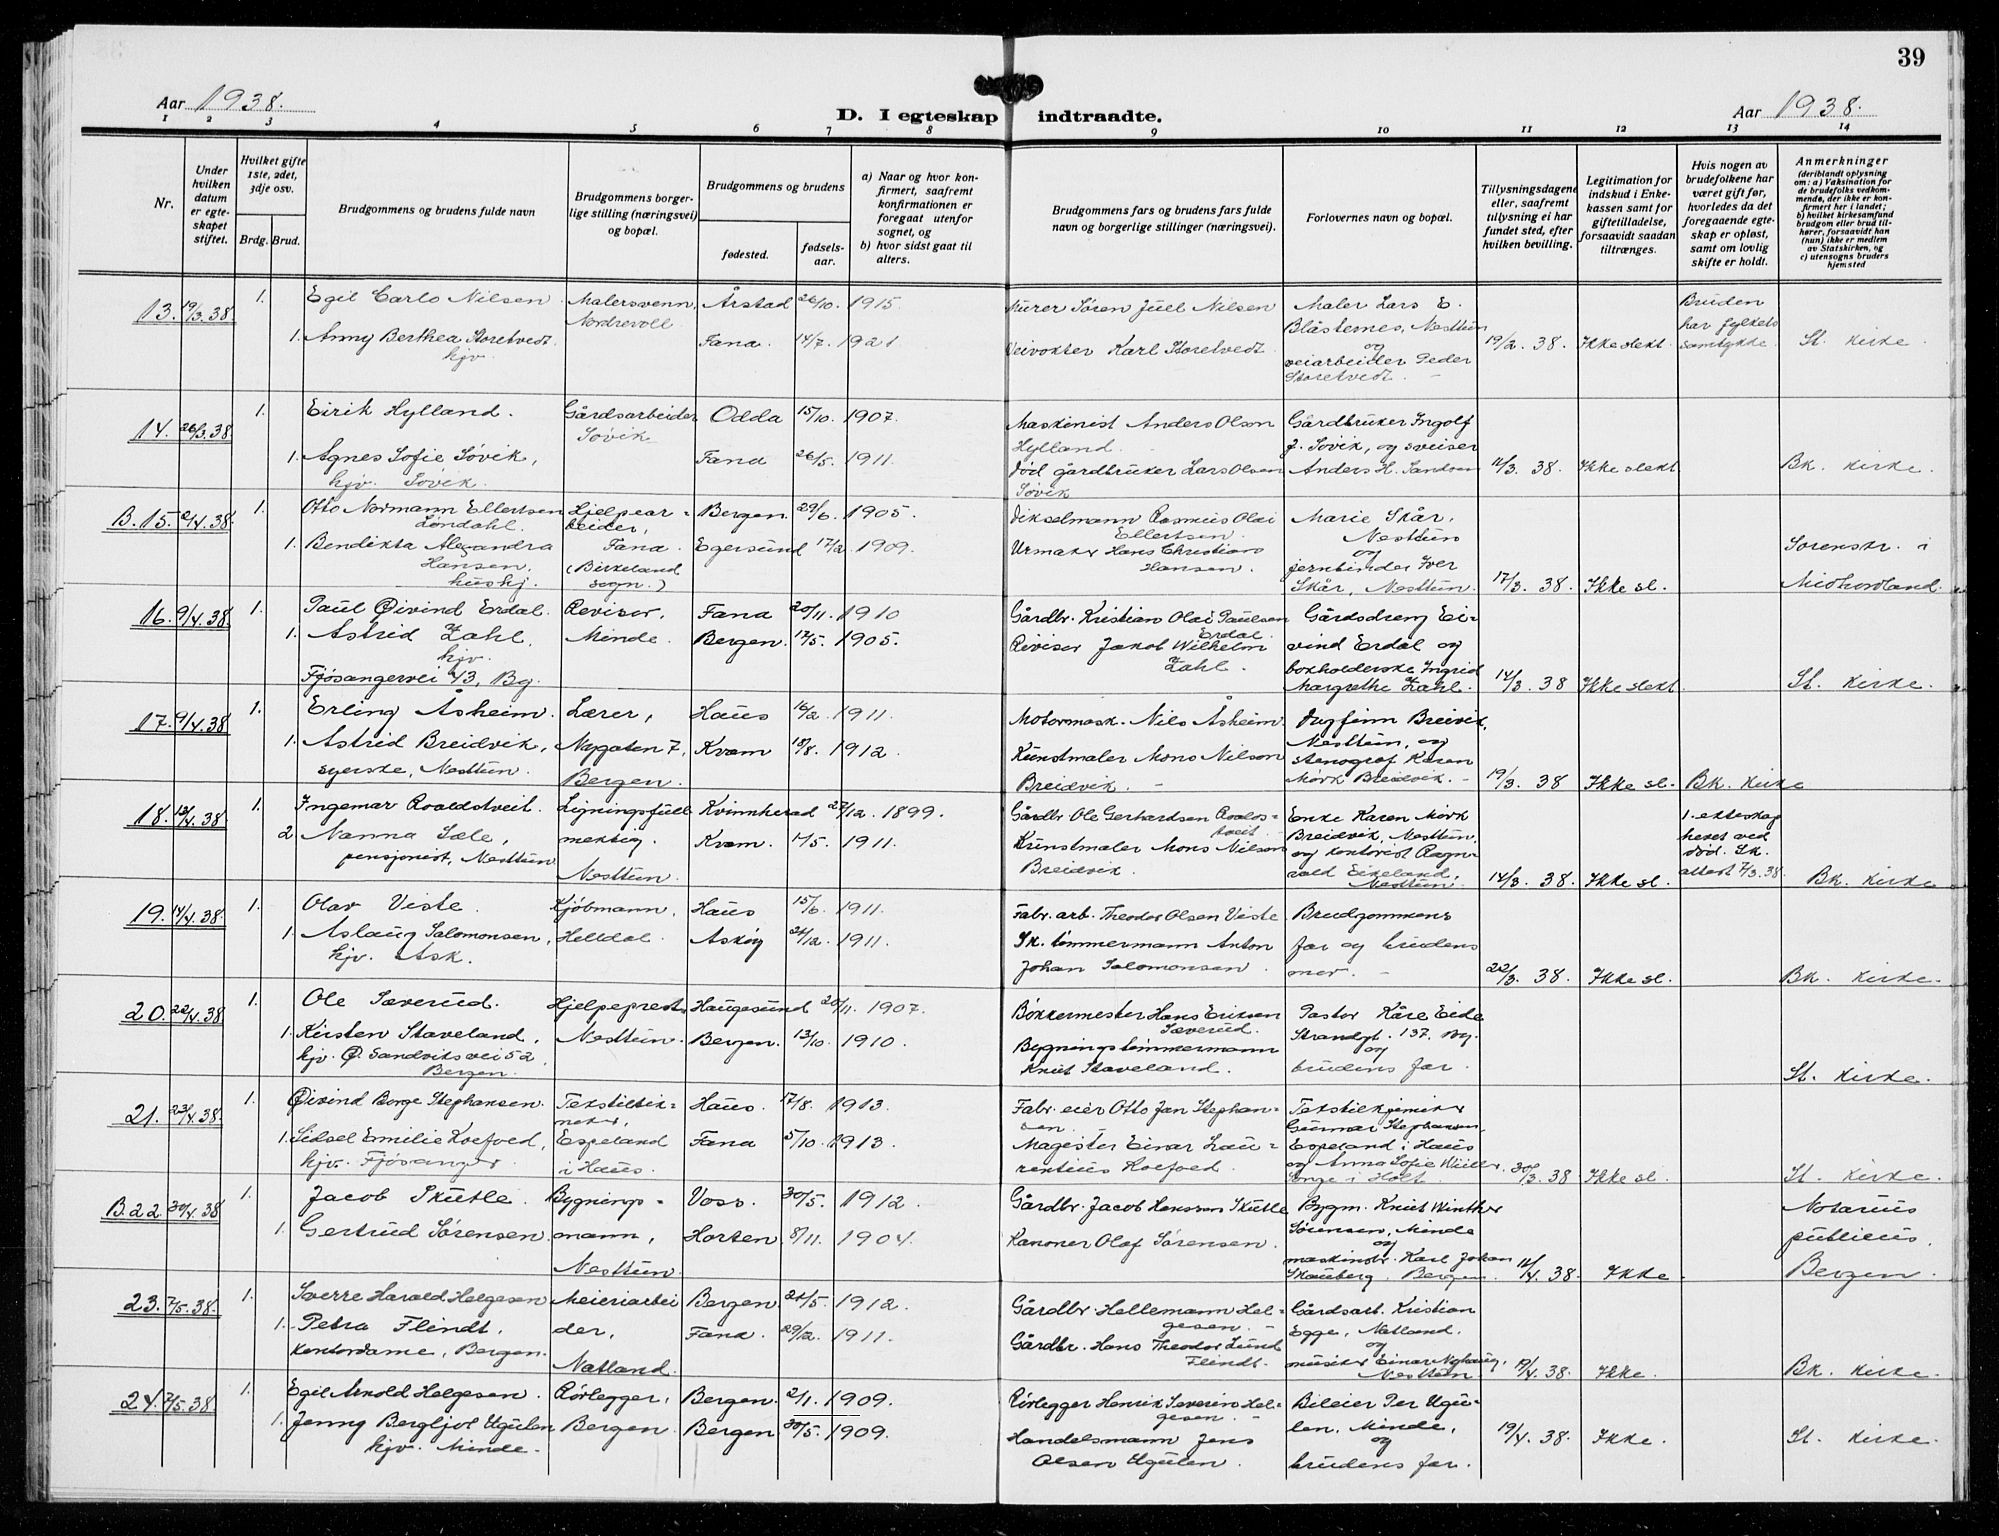 39
Aar 1938.
D. I egteskap indtraadte.
Aar 1938.
1 2 3 4 5 6 7 8 9 10 11 12 13 14
Nr.
Under hvilken datum er egteskapet stiftet.
Hvilket gifte 1ste, 2det, 3dje osv.
Brdg. Brud.
Brudgommens og brudens fulde navn
Brudgommens borgerlige stilling (næringsvei) og bopæl.
Brudgommens og brudens
fødested.
fødselsaar.
a) Naar og hvor konfirmert, saafremt konfirmationen er foregaat utenfor sognet, og
b) hvor sidst gaat til alters.
Brudgommens fars og brudens fars fulde navn og borgerlige stillinger (næringsvei).
Forlovernes navn og bopæl.
Tillysningsdagene eller, saafremt tillysning ei har fundet sted, efter hvilken bevilling.
Legitimation for indskud i Enkekassen samt for giftetilladelse, forsaavidt saadan tiltrænges.
Hvis nogen av brudefolkene har været gift før, hvorledes da det foregaaende egteskap er opløst, samt om lovlig skifte er holdt.
Anmerkninger
(deriblandt oplysning om: a) Vaksination for de brudefolks vedkommende, der ikke er konfirmert her i landet; b) hvilket kirkesamfund brudgom eller brud tilhører, forsaavidt han (hun) ikke er medlem av Statskirken, og c) utensogns bruders hjemsted
13. 19/3.38. 1. Egil Carlo Nilsen Malersvenn, Årstad 26/10. 1915 Murer Søren Juel Nilsen Maler Lars E. Bruden
Nordrevoll Blåsternes, Nesttun har fylkets
1. Anny Berthea Storetvedt Fana. 14/7. 1921. Veivokter Karl Storetvedt. og 19/2. 38. Ikke slekt samtykke. St. kirke
hjv. veiarbeider Peder
Storetvedt.
14. 26/3.38 1. Eirik Hylland. Gårdsarbeider Odda 15/10. 1907. Maskinist Anders Olson Gårdbruker Ingolf
Søvik Hylland. J. Søvik, og sveiser
1. Agnes Sofie Søvik, Fana 26/5. 1911. Død gårdbruker Lars Olsen Anders H. Sandven 11/3. 38. Ikke slekt Bk. kirke.
hjv. Søvik. Søvik
B. 15. 2/4.38. 1. Otto Normann Ellertsen Hjelpear- Bergen. 29/6. 1905. Dikselmann Rasmus Olai Marie Skår,
Løndahl. beider, Ellertsen. Nesttun
1. Bendikta Alexandra Fana. Egersund 17/2. 1909. Urmaker Hans Christian og Sorenskr. i
Hansen, (Birkeland Hansen. jernbinder Iver
hushj. sogn.) Skår, Nesttun. 17/3. 38. Ikke sl. Midhordland.
16. 9/4.38. 1. Paul Øivind Erdal. Revisor, Fana 20/11. 1910 Gårdbr. Kristian Olai Paulsen Gårdsdreng Ei-
1. Astrid Zahl, Minde. Bergen. 17/5. 1905. Erdal. vind Erdal og
hjv. Revisor Jakob Wilhelm bokholderske Ingrid
Fjøsangervei 43, Bg. Zahl. Margrethe Zahl. 14/3. 38 Ikke slekt. St. kirke.
17. 9/4.38 1. Erling Åsheim. Lærer, Haus 16/2. 1911. Motormask. Nils Åsheim. Dagfinn Breivik,
1. Astrid Breidvik, Nygaten 7, Kvam 18/8. 1912. Kunstmaler Mons Nilson Nesttun, og
syerske, Nesttun. Bergen. Breidvik stenograf Karen
Mørk Breidvik. 19/3. 38 Ikke sl. Bk. kirke
18. 13/4.38 1. Ingemar Roaldstveit Ligningsfull- Kvinnherad 27/12. 1899. Gårdbr Ole Gerhardsen Roalds- Enke Karen Mørk 1. ekteskap
2 Nanna Sæle, mektig, Kvam. 17/5. 1911. tveit. Breidvik, Nesttun, hevet ved
pensjonist, Nesttun Nesttun. Kunstmaler Mons Nilson og kontorist Ragn- død. Sk.
Breidvik. vald Eikeland, Nesttun. 14/3. 38. Ikke sl. attest 7/3.38. Bk. kirke
19. 14/4.38. 1. Olav Viste. Kjøbmann, Haus 15/6. 1911. Fabr. arb. Theodor Olsen Viste Brudgommens
1. Aslaug Salomonsen, Helldal. Askøy 24/12. 1911. Sk. tømmermann Anton far og brudens
hjv. Ask. Johan Salomonsen. mor. 22/3. 38. Ikke sl. Bk. kirke.
20. 22/4.38 1. Ole Sæverud. Hjelpeprest, Haugesund 20/11. 1907. Bøkkermester Hans Eriksen Pastor Kåre Eide
1. Kirsten Staveland, Nesttun. Bergen. 13/10. 1910. Sæverud. Strandgt. 137. Bg.
hjv. Ø. Sandviksvei 52 Bygningstømmermann og
Bergen. Knut Staveland. brudens far. St. kirke.
21. 23/4.38. 1. Øivind Borge Stephansen. Tekstiltek- Haus. 17/8. 1913. Fabr. eier Otto Jan Stephan- Tekstilkjemiker
niker, sen. Gunnar Stephansen,
1. Sidsel Emilie Koefoed, Espeland Fana 5/10. 1913. Magister Einar Lau- Espeland i Haus
hjv. Fjøsanger i Haus. rentius Koefoed. og Anna Sofie
i Holt. 30/3. 38 Ikke sl. St. kirke.
B. 22. 30/4.38 1. Jacob Skutle. Bygnings- Voss. 30/5. 1912. Gårdbr. Jacob Hanssen Skutle Bygm. Knut Winther Notarius
1. Gertrud Sørensen. mann, Horten. 8/11. 1904. Kanoner Olaf Sørensen. Sørensen, Minde publicus.
Nesttun. og maskindr. Karl Johan
Skauberg, Bergen. 11/4. 38. Ikke Bergen.
23. 7/5.38. 1. Sverre Harald Helgesen Meieriarbei Bergen. 21/5. 1912. Gårdbr. Hellemann Hel- Gårdsarb. Kristian
1. Petra Flindt, der, Fana. 29/2. 1911. gesen. Egge, Natland.
kontordame, Bergen. Natland. Gårdbr. Hans Theodor Lund og
Flindt. musiker Einar Nyhaug, Nesttun. 19/4. 38. Ikke. Bk. kirke.
24. 7/5.38 1. Egil Arnold Helgesen. Rørlegger, Bergen. 2/1. 1909. Rørlegger Henrik Severin Hel- Bileier Per Ugu-
1. Jenny Bergljot Ugulen Bergen. Bergen 30/5. 1909. gesen. len, Minde,
hjv. Minde. Handelsmann Jens og
Olsen Ugulen. brudens far. 19/4. 38. Ikke. St. kirke.